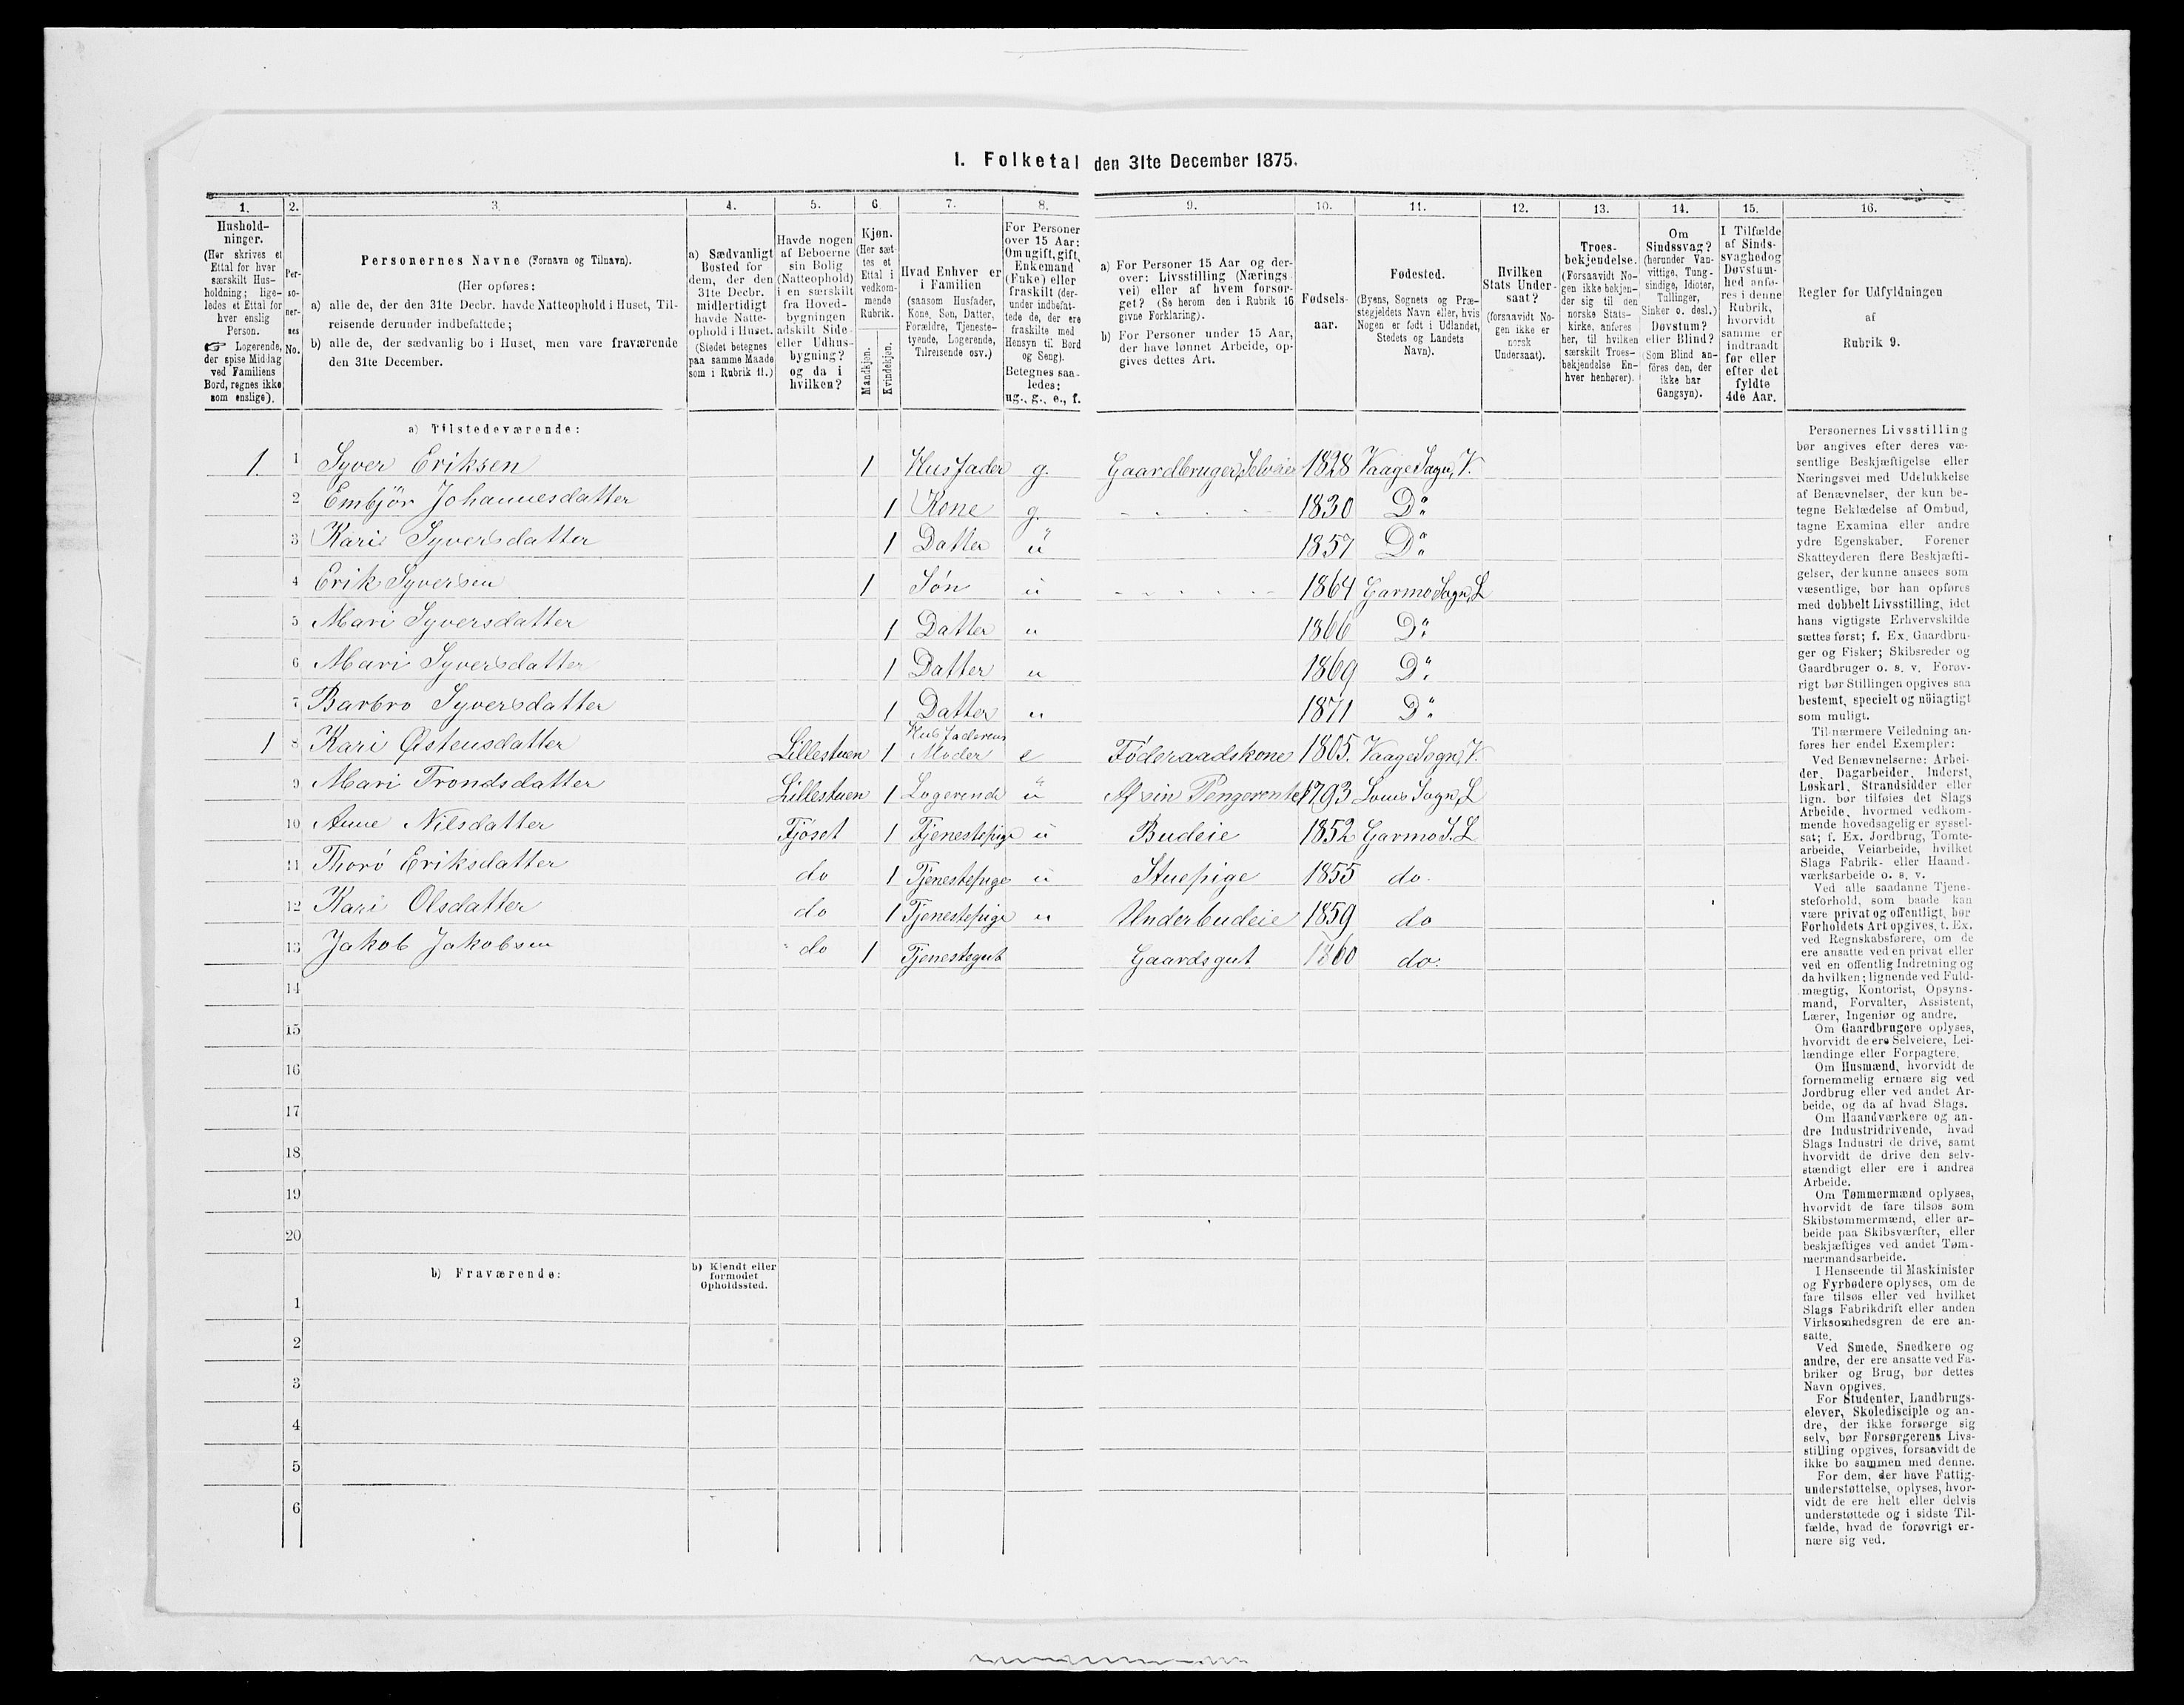 I. Folketal den 31te December 1875.
1. 2. 3. 4. 5. 6. 7. 8. 9. 10. 11. 12. 13. 14. 15. 16.
Hushold-
ninger.
(Her skrives et
Ettal for hver
særskilt Hus-
holdning; lige-
ledes et Ettal for
hver enslig
Person.
☞ Logerende,
der spise Middag
ved Familiens
Bord, regnes ikke
som enslige).
Per-
so-
ner-
nes
No.
Personernes Navne (Fornavn og Tilnavn).
(Her opføres:
a) alle de, der den 31te Decbr. havde Natteophold i Huset, Til-
reisende derunder indbefattede;
b) alle de, der sædvanlig bo i Huset, men vare fraværende
den 31te December.
a) Sædvanligt
Bosted for
dem, der den
31te Decbr.
midlertidigt
havde Natte-
ophold i Huset.
(Stedet betegnes
paa samme Maade
som i Rubrik 11.)
Havde nogen
af Beboerne
sin Bolig
(Natteophold)
i en særskilt
fra Hoved-
bygningen
adskilt Side-
eller Udhus-
bygning?
og da i
hvilken?
Kjøn.
(Her sæt-
tes et
Ettal i
vedkom-
mende
Rubrik.
Mandkjøn.
Kvindekjøn.
Hvad Enhver er
i Familien
(saasom Husfader,
Kone, Søn, Datter,
Forældre, Tjeneste-
tyende, Logerende,
Tilreisende osv.)
For Personer
over 15 Aar:
Om ugift, gift,
Enkemand
(Enke) eller
fraskilt (der-
under indbefat-
tede de, der ere
fraskilte med
Hensyn til Bord
og Seng).
Betegnes saa-
ledes:
ug., g., e., f.
a) For Personer 15 Aar og der-
over: Livsstilling (Nærings-
vei) eller af hvem forsør-
get? (Se herom den i Rubrik 16
givne Forklaring).
b) For Personer under 15 Aar,
der have lønnet Arbeide, op-
gives dettes Art.
Fødsels-
aar.
Fødested.
(Byens, Sognets og Præ-
stegjeldets Navn eller, hvis
Nogen er født i Udlandet,
Stedets og Landets
Navn).
Hvilken
Stats Under-
saat?
(forsaavidt No-
gen ikke er
norsk
Undersaat).
Troes-
bekjendelse.
(Forsaavidt No-
gen ikke bekjen-
der sig til den
norske Stats-
kirke, anføres
her, til hvilken
særskilt Troes-
bekjendelse En-
hver henhører).
Om
Sindssvag?
(herunder Van-
vittige, Tung-
sindige, Idioter,
Tullinger,
Sinker o. desl.)
Døvstum?
eller Blind?
(Som Blind an-
føres den, der
ikke har
Gangsyn).
I Tilfælde
af Sinds-
svaghed og
Døvstum-
hed anfø-
res i denne
Rubrik,
hvorvidt
samme er
indtraadt
før eller
efter det
fyldte
4de Aar.
Regler for Udfyldningen
af
Rubrik 9.
a) Tilstedeværende:
1. 1 Syver Eriksen 1 Husfader g. Gaardbruger, Selveier 1828 Vaage Sogn, V.
2 Embjör Johannesdatter 1 Kone g. 1830 Do
3 Kari Syversdatter 1 Datter u 1857 Do
4 Erik Syversen 1 Søn u 1864 Garmo Sogn, L
5 Mari Syversdatter 1 Datter u 1866 Do
6 Mari Syversdatter 1 Datter u 1869 Do
7 Barbro Syversdatter 1 Datter u 1871 Do
1 8 Kari Østensdatter Lillestuen 1 Husfaderens Moder e Föderaadskone 1805. Vaage Sogn, V.
9 Mari Trondsdatter Lillestuen 1 Logerende u Af sin Pengerente 1793 Loms Sogn, L
10 Anne Nilsdatter Fjöset 1 Tjenestepige u Budeie 1852 Garmo S. L
11 Thorö Eriksdatter do 1 Tjenestepige u Stuepige 1855 do.
12 Kari Olsdatter do 1 Tjenestepige u Underbudeie 1859 do
13 Jakob Jakobsen do 1 Tjenestegut Gaardsgut 1860 do.
14
15
16
17
18
19
20
b) Fraværende:
b) Kjendt eller
formodet
Opholdssted.
1
2
3
4
5
6
Personernes Livsstilling
bør angives efter deres væ-
sentlige Beskjæftigelse eller
Næringsvei med Udelukkelse
af Benævnelser, der kun be-
tegne Beklædelse af Ombud,
tagne Examina eller andre
ydre Egenskaber. Forener
Skatteyderen flere Beskjæfti-
gelser, der kunne ansees som
væsentlige, bør han opføres
med dobbelt Livsstilling, idet
hans vigtigste Erhvervskilde
sættes først; f. Ex. Gaardbru-
ger og Fisker; Skibsreder og
Gaardbruger o. s. v. Forøv-
rigt bør Stillingen opgives saa
bestemt, specielt og nöiagtigt
som muligt.
Til nærmere Veiledning an-
føres her endel Exempler:
Ved Benævnelserne: Arbei-
der, Dagarbeider, Inderst,
Løskarl, Strandsidder eller
lign. bør tilføies det Slags
Arbeide, hvormed vedkom-
mende hovedsagelig er syssel-
sat; f. Ex. Jordbrug, Tomte-
arbeide, Veiarbeide, hvilket
Slags Fabrik- eller Haand-
værksarbeide o. s. v.
Ved alle saadanne Tjene-
steforhold, som baade kan
være privat og offentligt, bør
Forholdets Art opgives, t. Ex.
ved Regnskabsførere, om de
ere ansatte ved en privat eller
ved en offentlig Indretning og
da hvilken; lignende ved Fuld-
mægtig, Kontorist, Opsyns-
mand, Forvalter, Assistent,
Lærer, Ingeniør og andre.
Om Gaardbrugere oplyses,
hvorvidt de ere Selveiere, Lei-
lændinge eller Forpagtere.
Om Husmænd, hvorvidt de
fornemmelig ernære sig ved
Jordbrug eller ved andet Ar-
beide, og da af hvad Slags.
Om Haandværkere og an-
dre Industridrivende, hvad
Slags Industri de drive, samt
hvorvidt de drive den selv-
stændigt eller ere i andres
Arbeide.
Om Tømmermænd oplyses,
hvorvidt de fare tilsøs som
Skibstømmermænd, eller ar-
beide paa Skibsværfter, eller
beskjæftiges ved andet Tøm-
mermandsarbeide.
I Henseende til Maskinister
og Fyrbødere oplyses, om de
fare tilsøs eller ved hvilket
Slags Fabrikdrift eller anden
Virksomhedsgren de ere an-
satte.
Ved Smede, Snedkere og
andre, der ere ansatte ved Fa-
briker og Brug, bør dettes
Navn opgives.
For Studenter, Landbrugs-
elever, Skoledisciple og an-
dre, der ikke forsørge sig
selv, bør Forsørgerens Livs-
stilling opgives, forsaavidt de
ikke bo sammen med denne.
For dem, der have Fattig-
understøttelse, oplyses, hvor-
vidt de ere helt eller delvis
understøttede og i sidste Til-
fælde, hvad de forøvrigt er-
nære sig ved.